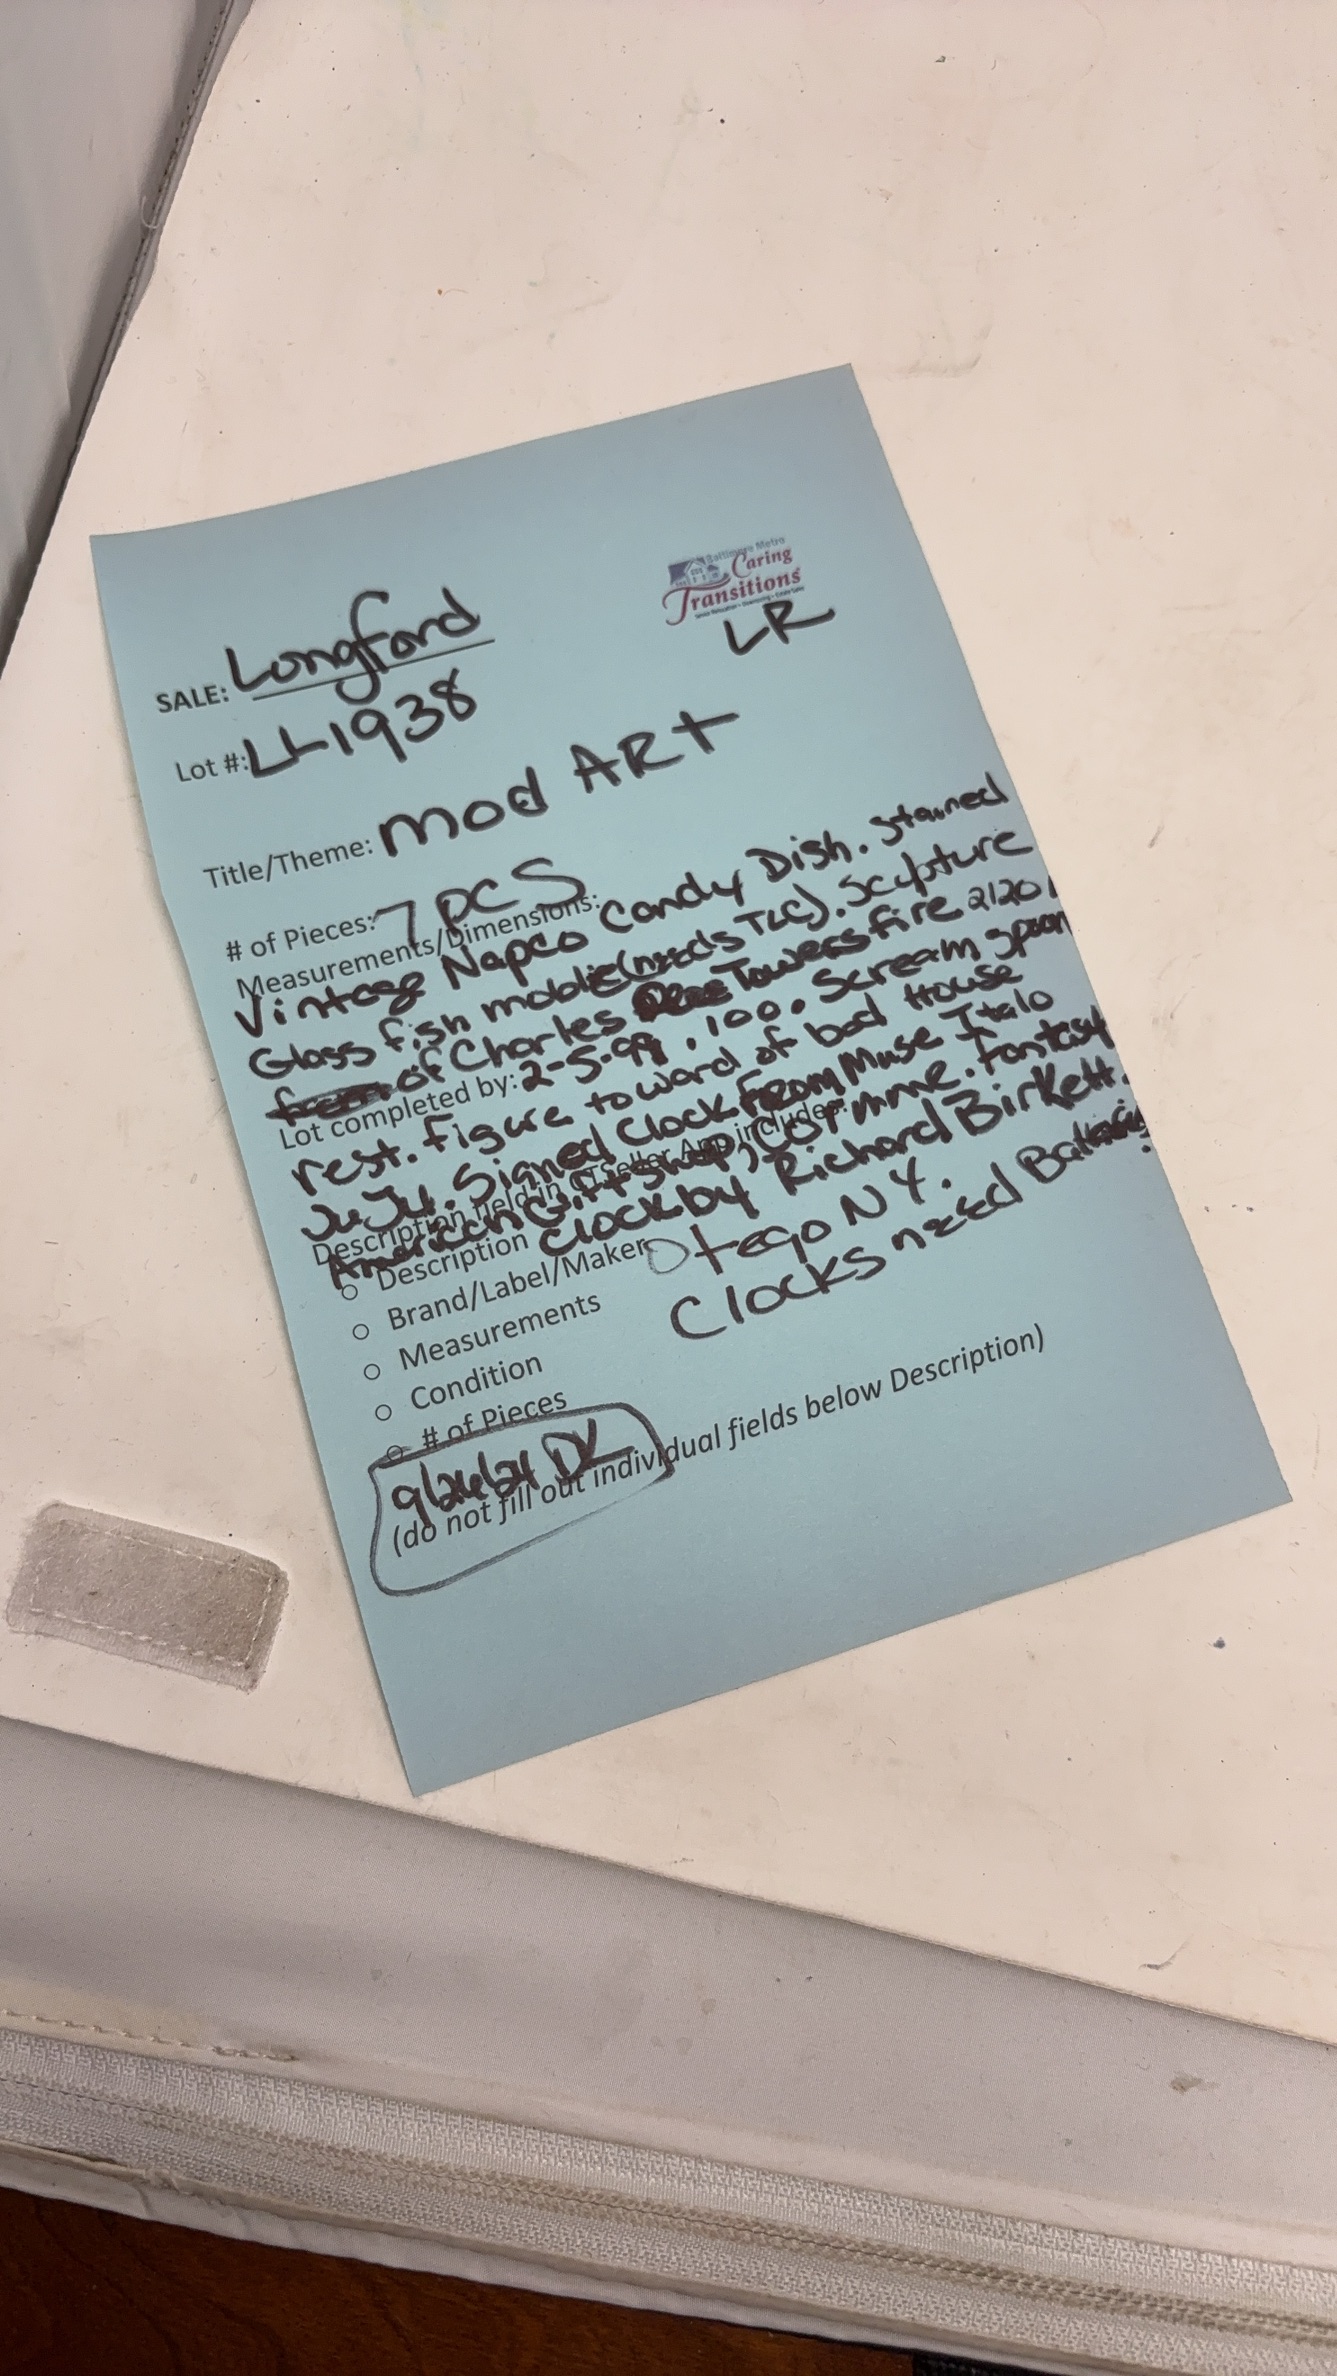 Baltimore Metro
Caring
Transitions
LR
SALE: Longford
Lot #: LL1938
Title/Theme: Mod ART
# of Pieces: 7 PCS
Measurements/Dimensions:
Vintage Napco Candy Dish. Stained
Glass fish mobile (needs TLC). Sculpture
of Charles Towersfire 2120
Lot completed by: 2-5-99. 100. Scream spoon
rest. Figure to ward of bad House
JuJu. Signed Clock From Muse Italo
Description field in CTSeller App includes:
American Gift Shop, Corinne. Fantasy
Description Clock by Richard Birkett.
Brand/Label/Maker Otego NY.
Measurements Clocks need Batteries
Condition
# of Pieces
9/26/24 DK
(do not fill out individual fields below Description)